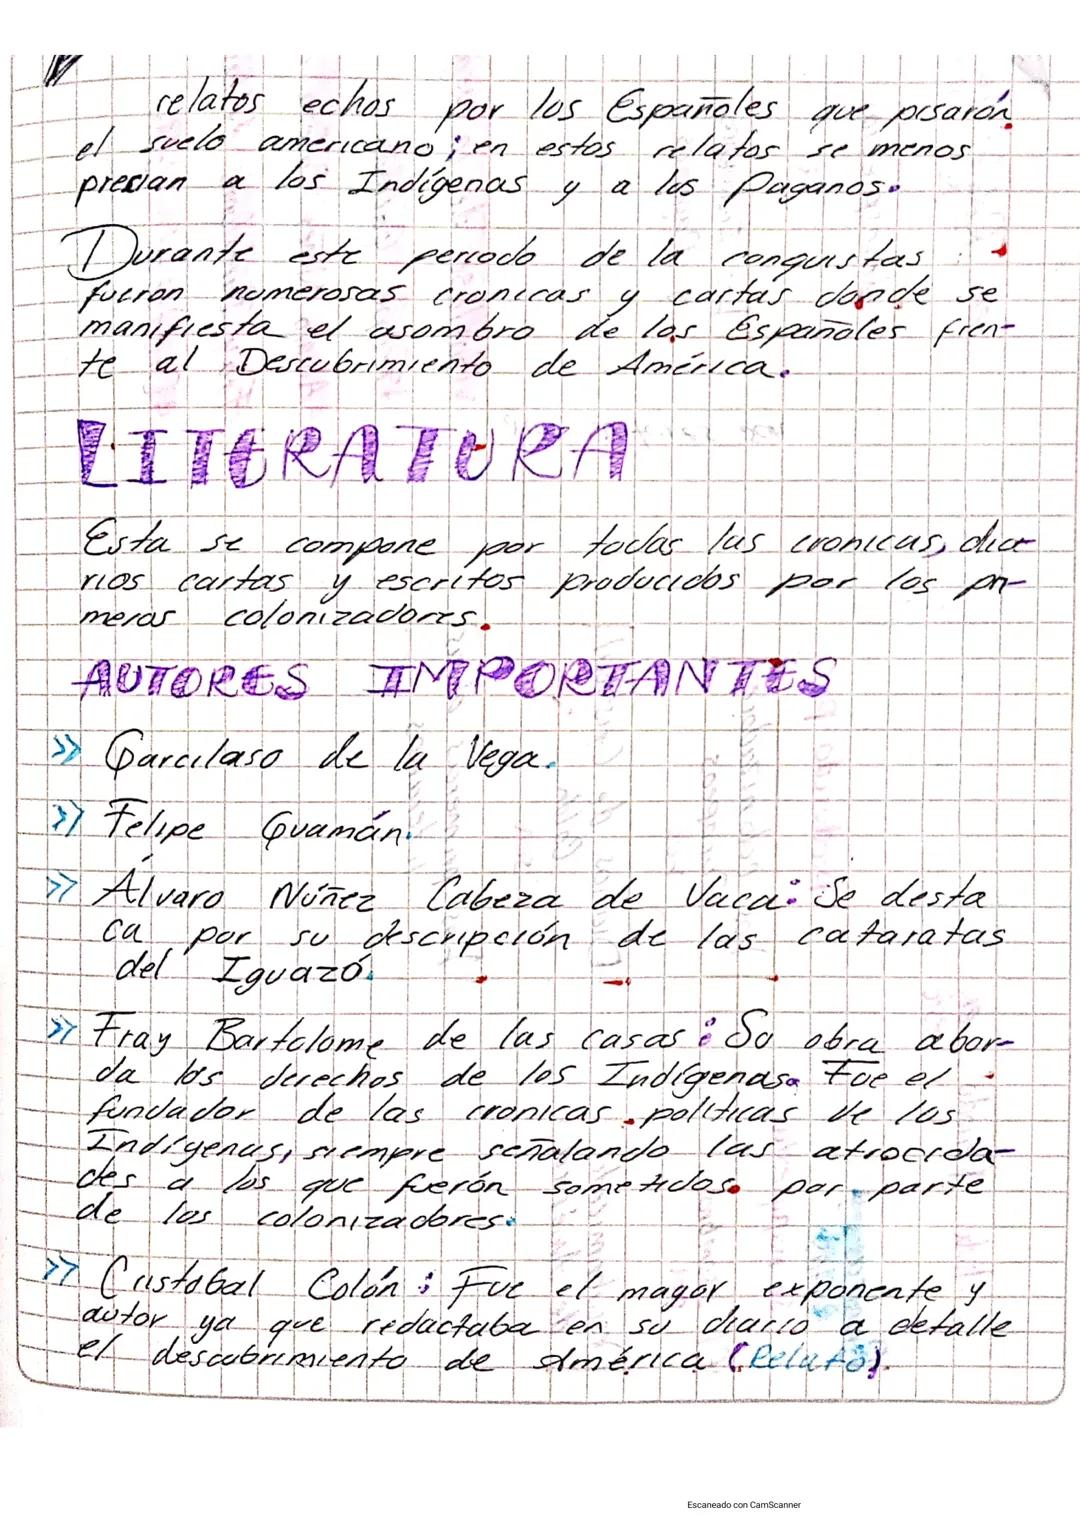 relatos echos por los Españoles que pisarón
el suelo americano; en estos relatos se menos
precian a los Indígenas y a los Paganos.
Durante este periodo de la conquistas
fueron numerosas cronicas y cartas donde se
manifiesta el asombro de los Españoles fren-
te al Descubrimiento de América.
LITERATURA
Esta se compone por todas las cronicas, dia
rios cartas y escritos producidos por los pri-
meros colonizadores.
AUTORES IMPORTANTES
>> Garcilaso de la Vega.
>> Felipe Guamán.
>> Álvaro Núñez Cabeza de Vaca: Se desta
ca por su descripción de las cataratas
del Iguazó.
>> Fray Bartolome de las casas: Su obra abor-
da los derechos de los Indígenas. Fue el
fundador de las cronicas políticas de los
Indígenas, siempre señalando las atrocida-
des a los que fuerón sometidos por parte
de los colonizadores.
>> Cristobal Colón: Fue el mayor exponente y
autor ya que redactaba en su diario a detalle
el descubrimiento de América (Relato).
Escaneado con CamScanner